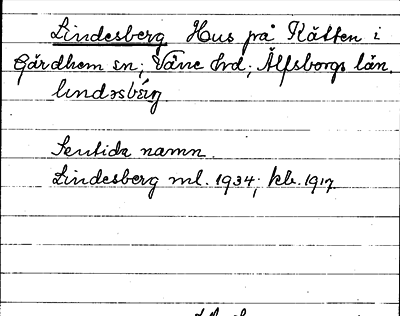 Lindesberg Hus på Kätten i
Gärdhem sn; Väne hd; Älfsborgs län.
lındəsbærg.
Sentida namn.
Lindesberg ml. 1934; kb. 1917